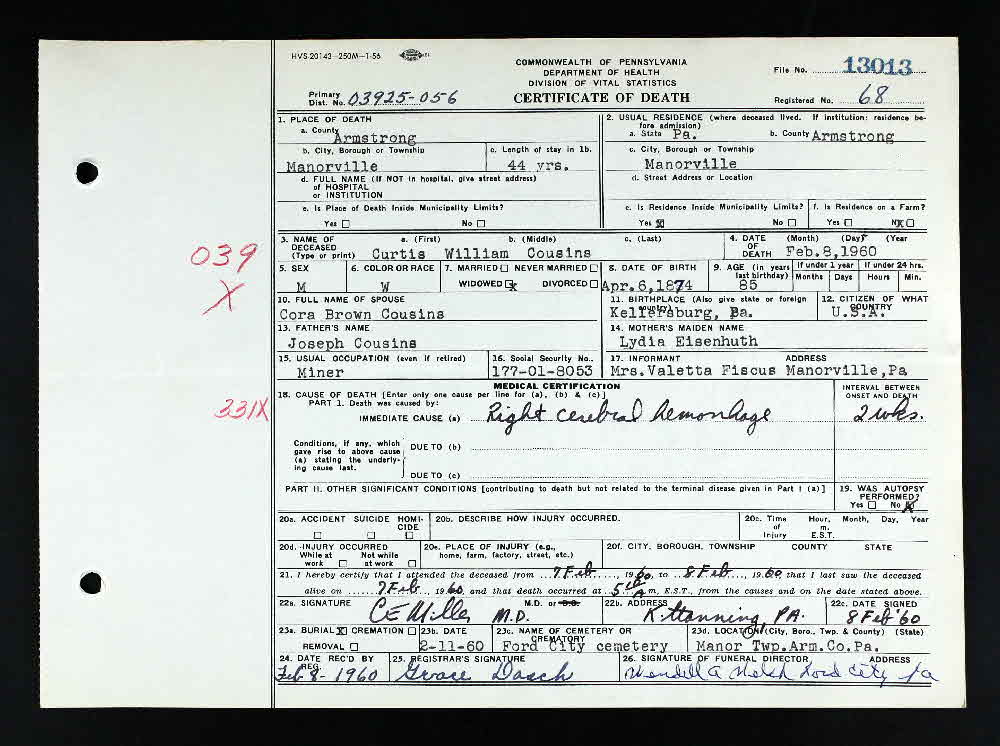 HVS-20143-250M-1-56
COMMONWEALTH OF PENNSYLVANIA
DEPARTMENT OF HEALTH
DIVISION OF VITAL STATISTICS
CERTIFICATE OF DEATH
File No. 13013
Primary Dist. No. 03925-056
Registered No. 68
1. PLACE OF DEATH
a. County Armstrong
b. City, Borough or Township Manorville
c. Length of stay in 1b. 44 yrs.
d. FULL NAME (If NOT in hospital, give street address) of HOSPITAL or INSTITUTION
e. Is Place of Death Inside Municipality Limits?
Yes No
2. USUAL RESIDENCE (where deceased lived. If institution: residence before admission)
a. State Pa. b. County Armstrong
c. City, Borough or Township
Manorville
d. Street Address or Location
e. Is Residence Inside Municipality Limits? f. Is Residence on a Farm?
Yes X No Yes No X
3. NAME OF DECEASED (Type or print) a. (First) b. (Middle) c. (Last)
Curtis William Cousins
4. DATE OF DEATH (Month) (Day) (Year
Feb.8,1960
039
X
5. SEX M
6. COLOR OR RACE W
7. MARRIED NEVER MARRIED
WIDOWED x DIVORCED
8. DATE OF BIRTH Apr.6,1874
9. AGE (in years last birthday) 85
If under 1 year Months Days
If under 24 hrs. Hours Min.
10. FULL NAME OF SPOUSE
Cora Brown Cousins
11. BIRTHPLACE (Also give state or foreign country)
Kellersburg, Pa.
12. CITIZEN OF WHAT COUNTRY
U.S.A.
13. FATHER'S NAME
Joseph Cousins
14. MOTHER'S MAIDEN NAME
Lydia Eisenhuth
15. USUAL OCCUPATION (even if retired)
Miner
16. Social Security No..
177-01-8053
17. INFORMANT ADDRESS
Mrs.Valetta Fiscus Manorville,Pa
MEDICAL CERTIFICATION
18. CAUSE OF DEATH [Enter only one cause per line for (a), (b) & (c)]
PART I. Death was caused by:
IMMEDIATE CAUSE (a) Right cerebral hemorrhage
INTERVAL BETWEEN ONSET AND DEATH
2 wks.
331X
Conditions, if any, which gave rise to above cause (a) stating the underlying cause last.
DUE TO (b)
DUE TO (c)
PART II. OTHER SIGNIFICANT CONDITIONS [contributing to death but not related to the terminal disease given in Part I (a)]
19. WAS AUTOPSY PERFORMED?
Yes No X
20a. ACCIDENT SUICIDE HOMICIDE
20b. DESCRIBE HOW INJURY OCCURRED.
20c. Time of Injury Hour, m. E.S.T. Month, Day, Year
20d. INJURY OCCURRED
While at work Not while at work
20e. PLACE OF INJURY (e.g., home, farm, factory, street, etc.)
20f. CITY, BOROUGH, TOWNSHIP COUNTY STATE
21. I hereby certify that I attended the deceased from 7 Feb, 1960, to 8 Feb, 1960 that I last saw the deceased
alive on 7 Feb, 1960, and that death occurred at 5 15 A m, E.S.T., from the causes and on the date stated above.
22a. SIGNATURE M.D. or D.O.
C E Miller M.D.
22b. ADDRESS
Kittanning, PA.
22c. DATE SIGNED
8 Feb '60
23a. BURIAL X CREMATION
REMOVAL
23b. DATE
2-11-60
23c. NAME OF CEMETERY OR CREMATORY
Ford City cemetery
23d. LOCATION (City, Boro., Twp. & County) (State)
Manor Twp.Arm.Co.Pa.
24. DATE REC'D BY REG.
Feb 8-1960
25. REGISTRAR'S SIGNATURE
Grace Dosch
26. SIGNATURE OF FUNERAL DIRECTOR, ADDRESS
Wendell A Welsh Ford City Pa